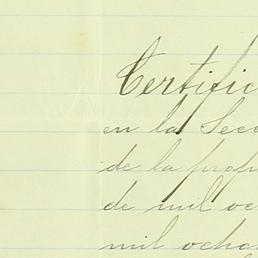 Certific
en la Secc
de la prop
de mil oc
mil ocho